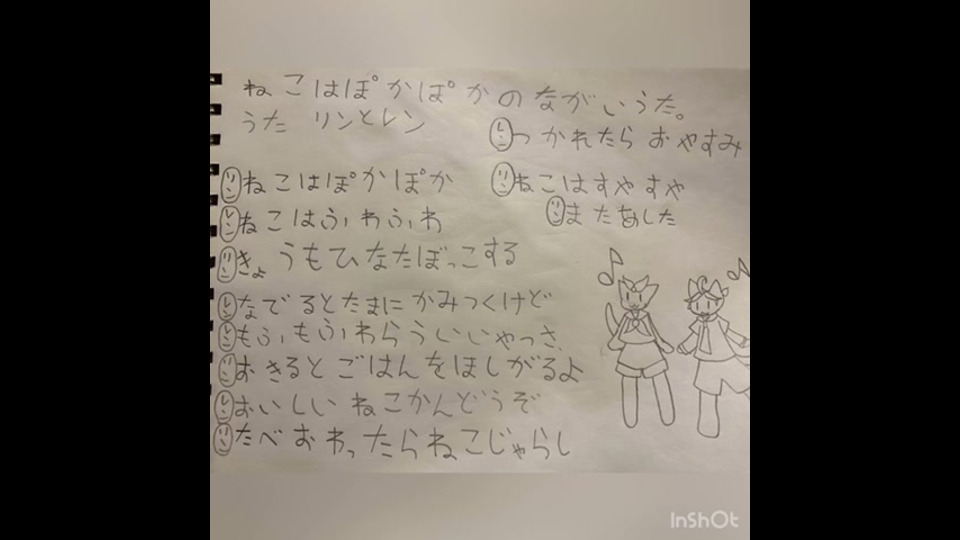 ねこはぽかぽかのながいうた。
うた リンとレン
リン ねこはぽかぽか
レン ねこはふわふわ
リン きょうもひなたぼっこする
レン なでるとたまにかみつくけど
レン もふもふわらういいやつさ、
リン おきるとごはんをほしがるよ
レン おいしいねこかんどうぞ
リン たべおわったらねこじゃらし
レン つかれたらおやすみ
リン ねこはすやすや
リン またあした
InShOt